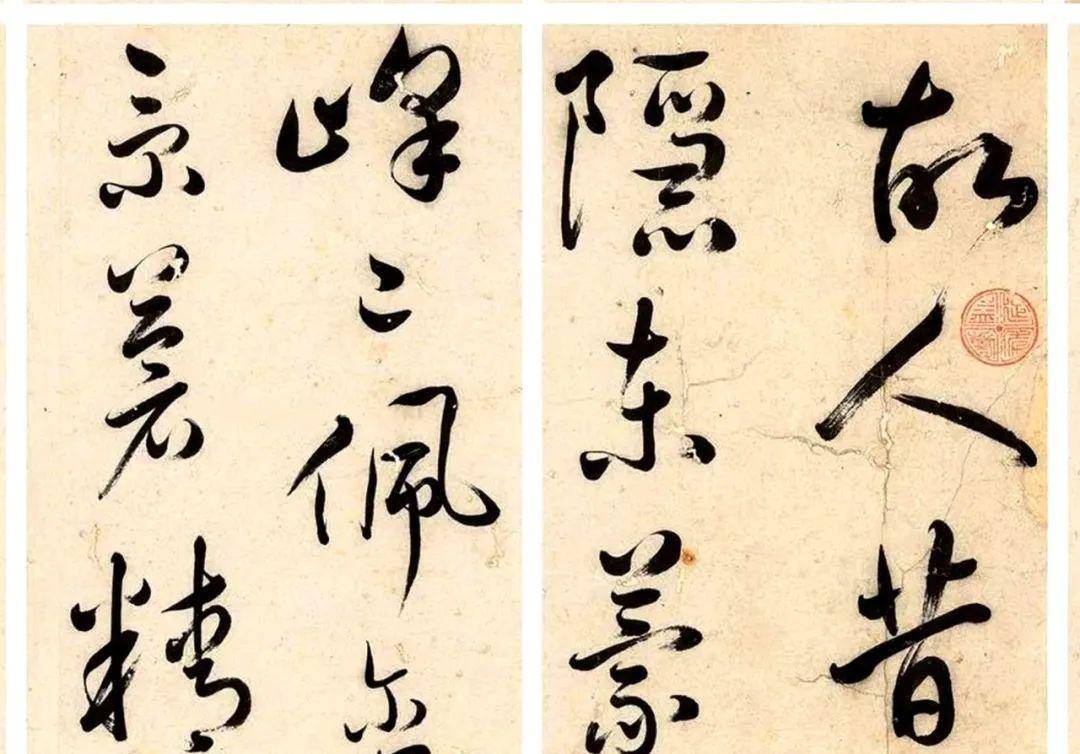 故人昔
隱東蒙
峰已佩
景蒼精